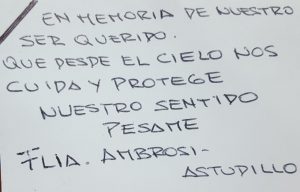 EN MEMORIA DE NUESTRO
SER QUERIDO.
QUE DESDE EL CIELO NOS
CUIDA Y PROTEGE
NUESTRO SENTIDO
PESAME
FLIA. AMBROSI-
ASTUDILLO